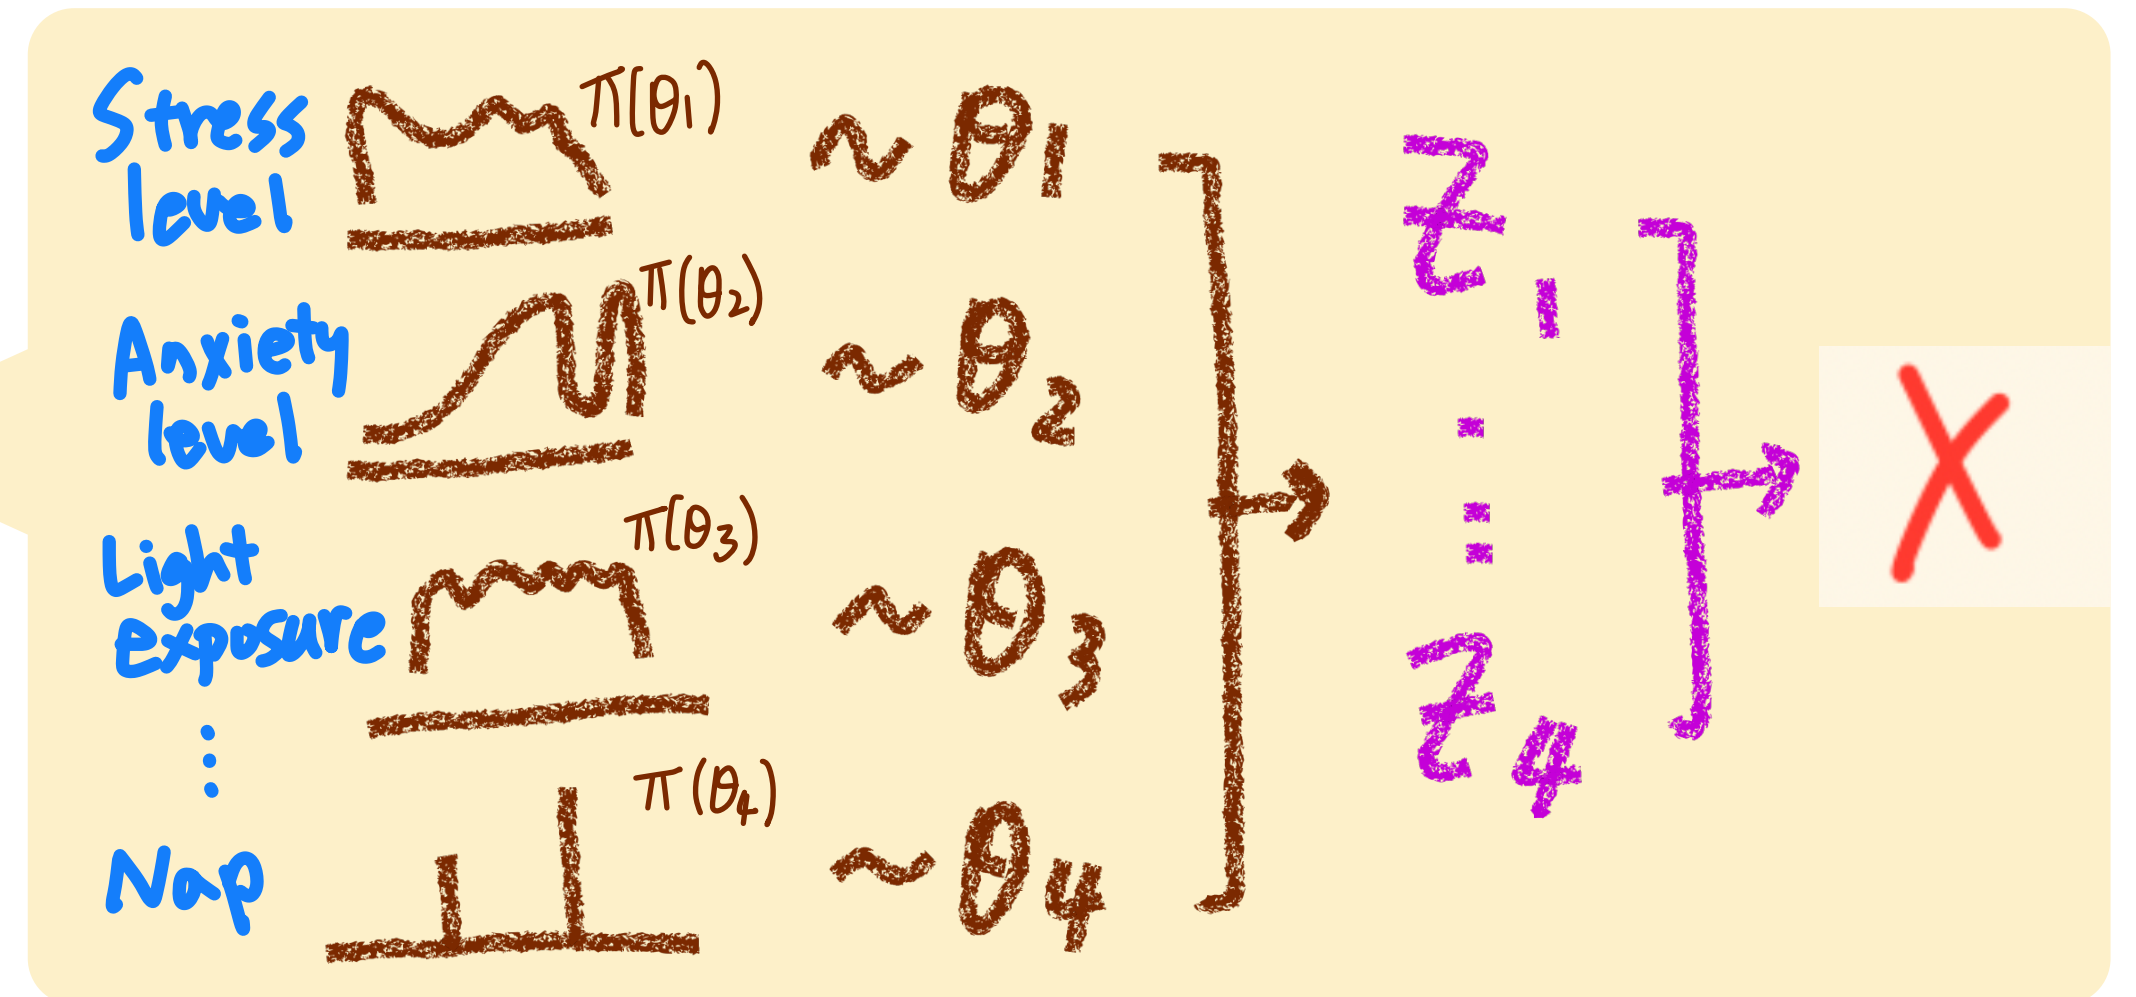 Stress
level
π(θ1)
~ θ1
Anxiety
level
π(θ2)
~ θ2
Light
exposure
π(θ3)
~ θ3
⋮
Nap
π(θ4)
~ θ4
Z1
⋮
Z4
X